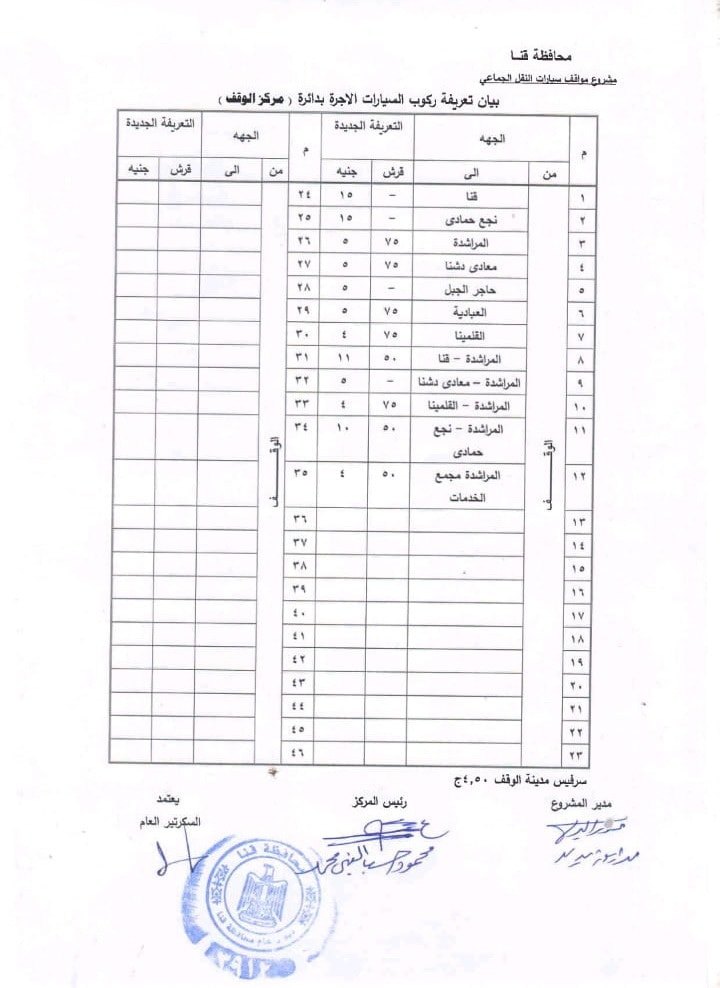 محافظة قنـا
مشروع مواقف سيارات النقل الجماعي
بيان تعريفة ركوب السيارات الاجرة بدائرة ( مركز الوقف )
م الجهه التعريفة الجديدة م الجهه التعريفة الجديدة
من الى قرش جنيه من الى قرش جنيه
١ قنا – ١٥ ٢٤
٢ نجع حمادى – ١٥ ٢٥
٣ المراشدة ٧٥ ٥ ٢٦
٤ معادى دشنا ٧٥ ٥ ٢٧
٥ حاجر الجبل – ٥ ٢٨
٦ العبادية ٧٥ ٥ ٢٩
٧ القلمينا ٧٥ ٤ ٣٠
٨ المراشدة – قنا ٥٠ ١١ ٣١
٩ المراشدة – معادى دشنا – ٥ ٣٢
١٠ المراشدة – القلمينا ٧٥ ٤ ٣٣
١١ المراشدة – نجع ٥٠ ١٠ ٣٤
حمادى
الوقـــــف الوقـــــف
١٢ المراشدة مجمع ٥٠ ٤ ٣٥
الخدمات
١٣ ٣٦
١٤ ٣٧
١٥ ٣٨
١٦ ٣٩
١٧ ٤٠
١٨ ٤١
١٩ ٤٢
٢٠ ٤٣
٢١ ٤٤
٢٢ ٤٥
٢٣ ٤٦
سرفيس مدينة الوقف ٤,٥٠ج
مدير المشروع رئيس المركز يعتمد
السكرتير العام
محافظة قنا